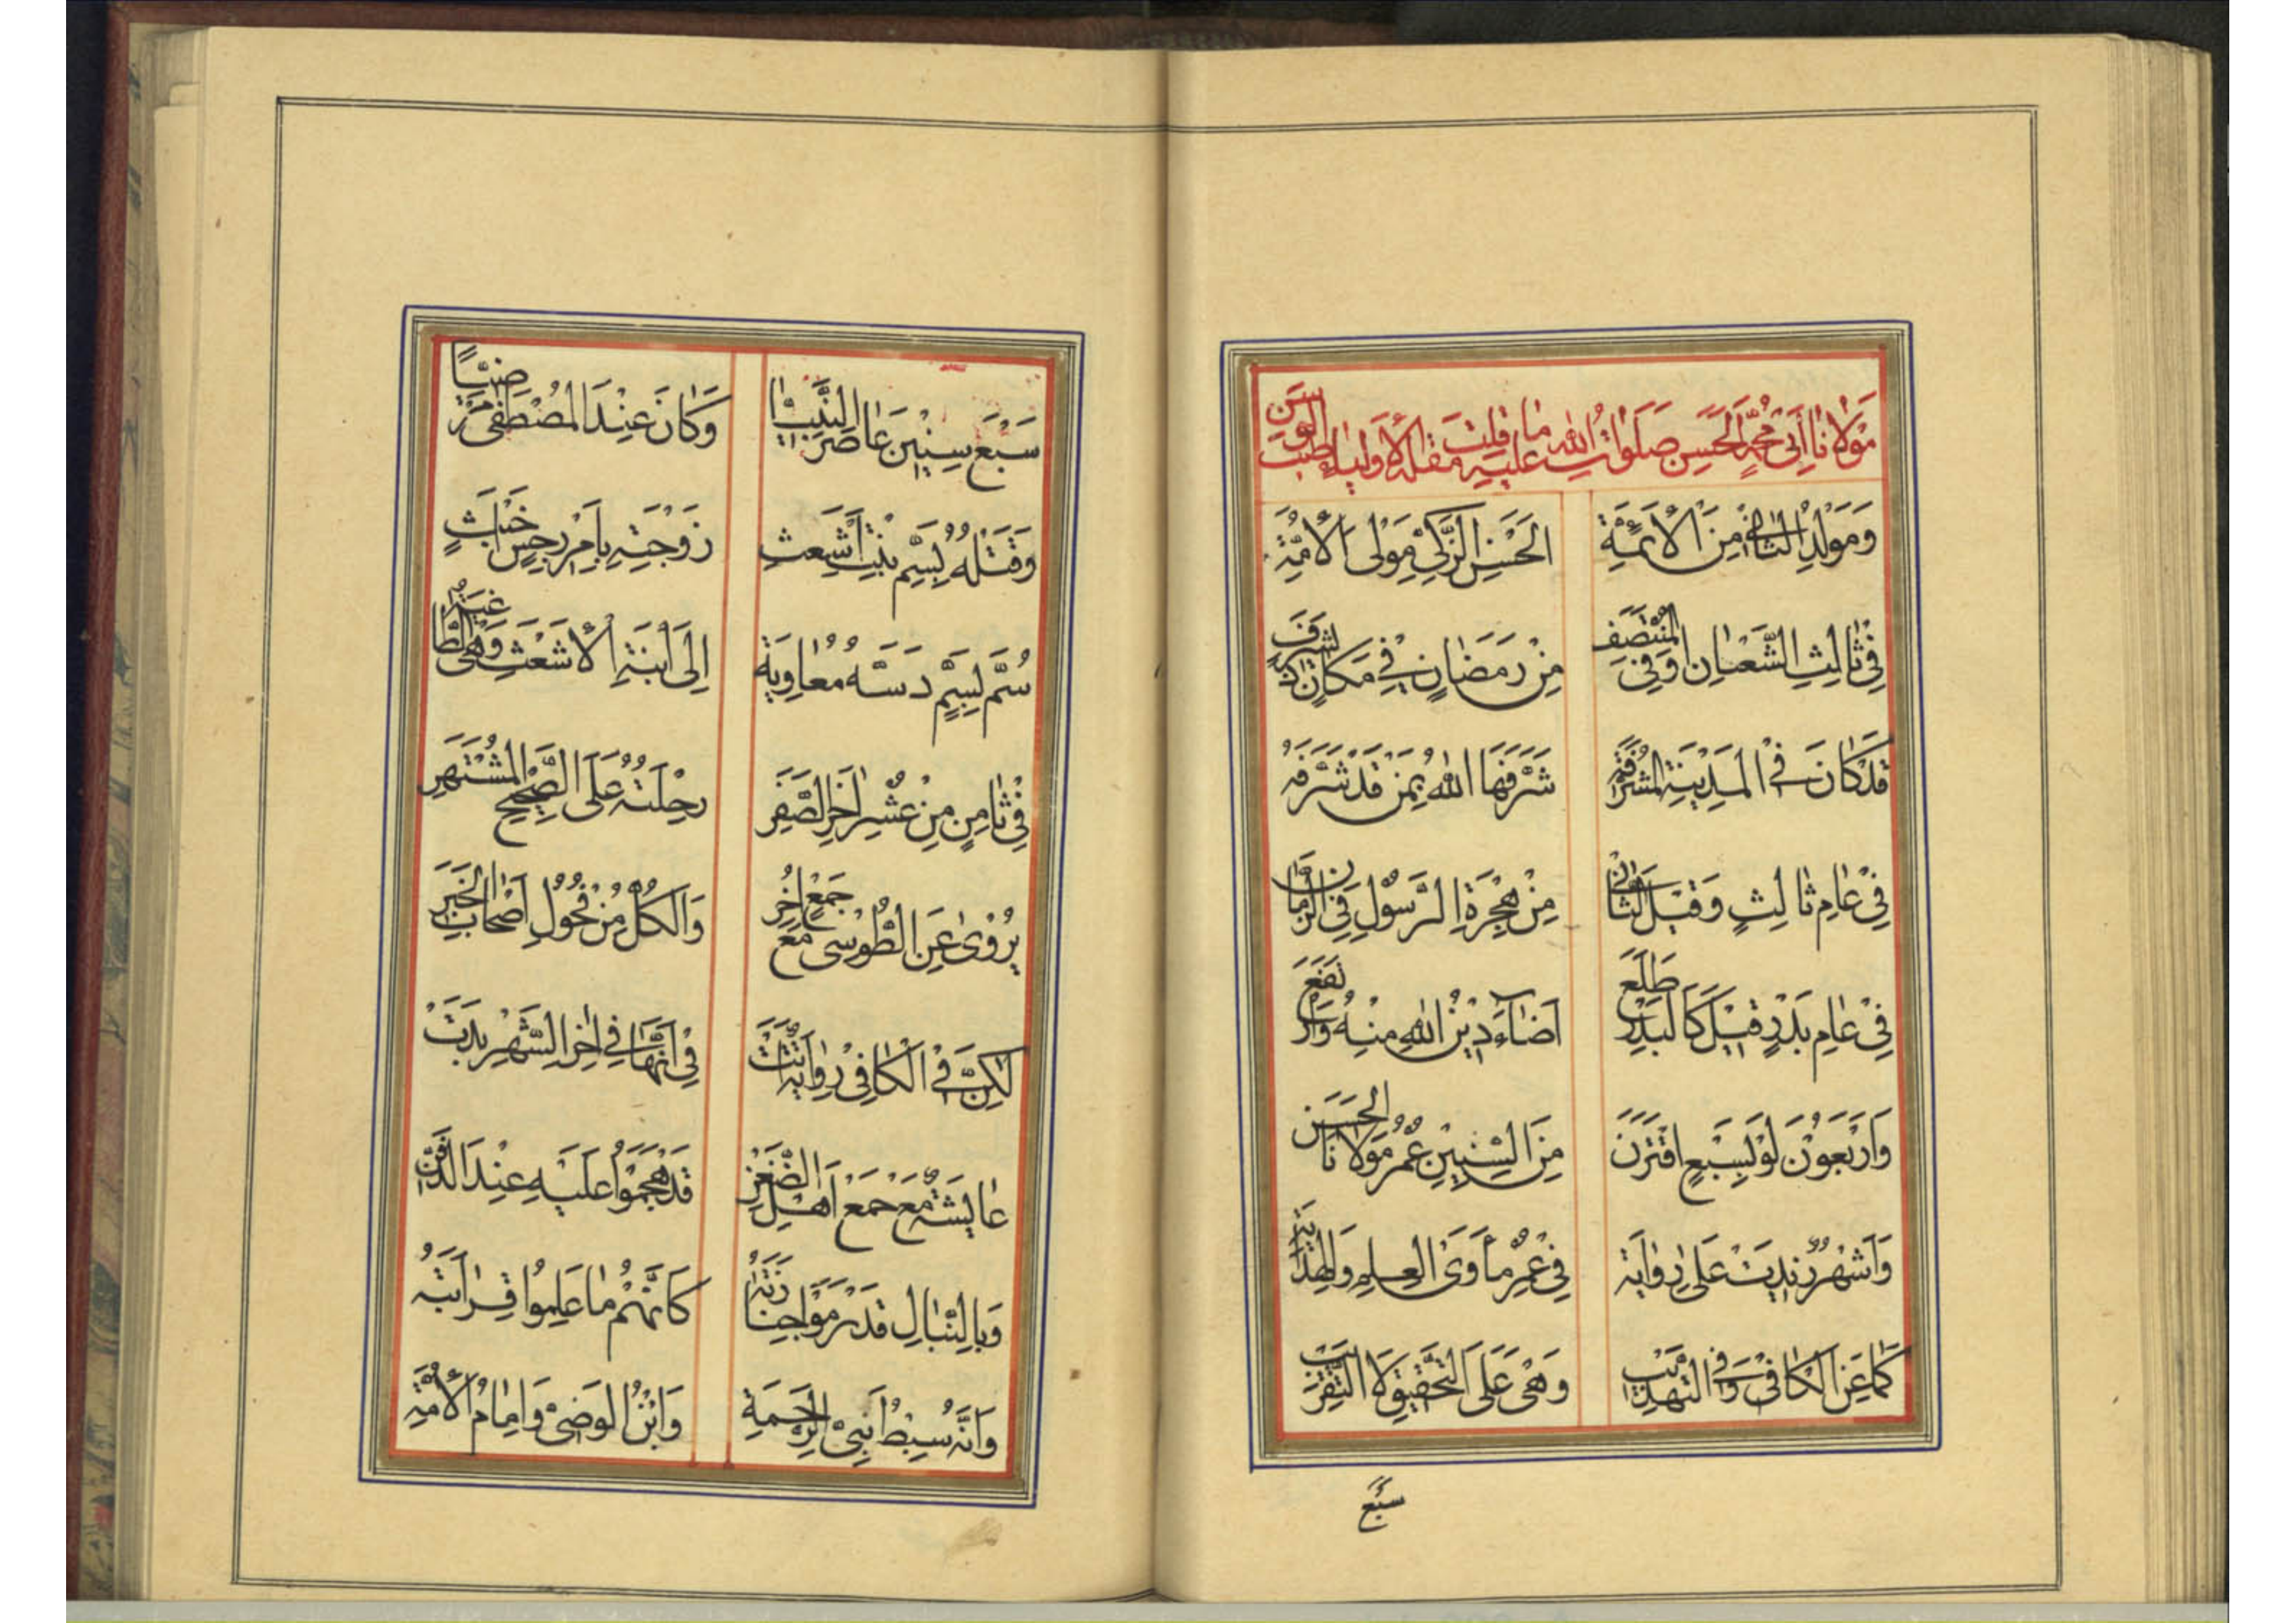 مَوْلَانَا أَبِي مُحَمَّدٍ الْحَسَنِ صَلَوَاتُ اللهِ عَلَيْهِ مَا قُلِبَتْ مُقْلَةُ الْأَوْلِيَاءِ بِطِيبِ الْوَسَنِ
وَمَوْلِدُ الثَّانِي مِنَ الْأَئِمَّةِ الْحَسَنِ الزَّكِيِّ مَوْلَى الْأُمَّةِ
فِي ثَالِثِ الشَّعْبَانِ أَوْ فِي الْمُنْتَصَفِ مِنْ رَمَضَانٍ فِي مَكَانٍ ذِي شَرَفٍ
قَدْ كَانَ فِي الْمَدِينَةِ الْمُشَرَّفَة شَرَّفَهَا اللهُ بِمَنْ قَدْ شَرَّفَهُ
فِي عَامِ ثَالِثٍ وَقِيلَ الثَّانِي مِنْ هِجْرَةِ الرَّسُولِ فِي الزَّمَانِ
فِي عَامِ بَدْرٍ قِيلَ كَالْبَدْرِ طَلَعَ أَضَاءَ دِيْنُ اللهِ مِنْهُ وَارْتَفَعَ
وَارْبَعُوْنَ لَوْ لِسَبْعٍ اقْتَرَنَ مِنَ السِّنِيْنِ عُمْرُ مَوْلَانَا الْحَسَنِ
وَاَشْهُرٌ زِيدَتْ عَلَى رِوَايَة فِي عُمْرِ مَأْوَى الْعِلْمِ وَالْهِدَايَة
كَمَا عَنِ الْكَافِي وَفِي التَّهْذِيبِ وَهْيَ عَلَى التَّحْقِيقِ لَا التَّقْرِيبِ
سَبْعَ
سَبْعَ سِنِيْنَ عَاصَرَ النَّبِيَّا وَكَانَ عِنْدَ الْمُصْطَفَى مَرْضِيًّا
وَقَتْلُهُ بِسَمِّ بِنْتِ أَشْعَثِ زَوْجَتِهِ بِأَمْرِ رِجْسٍ خَبَثٍ
سُمَّ بِسَمٍّ دَسَّهُ مُعَاوِيَة إِلَى ابْنَةِ الْأَشْعَثِ وَهْيَ الطَّاغِيَة
فِي ثَامِنٍ مِنْ عُشْرِ اٰخِرِ الصَّفَرِ رِحْلَتُهُ عَلَى الصَّحِيْحِ الْمُشْتَهَرِ
يُرْوَى عَنِ الطُّوسِي مَعَ جَمْعٍ اُخَرِ وَالْكُلُّ مِنْ فُحُولِ أَصْحَابِ الْخَبَرِ
لٰكِنَّ فِي الْكَافِي رِوَايَة أَتَتْ فِي أَنَّهَا فِي اٰخِرِ الشَّهْرِ بَدَتْ
عَايِشَةٌ مَعَ جَمْعِ أَهْلِ الضِّغْنِ قَدْ هَجَمُوا عَلَيْهِ عِنْدَ الدَّفْنِ
وَبِالنِّبَالِ قَدْ رَمَوْا جِنَازَتَهُ كَأَنَّهُمْ مَا عَلِمُوا قِرَابَتَهُ
وَانَّهُ سِبْطُ نَبِيِّ الرَّحْمَةِ وَابْنُ الْوَصِيِّ وَاِمَامُ الْأُمَّةِ